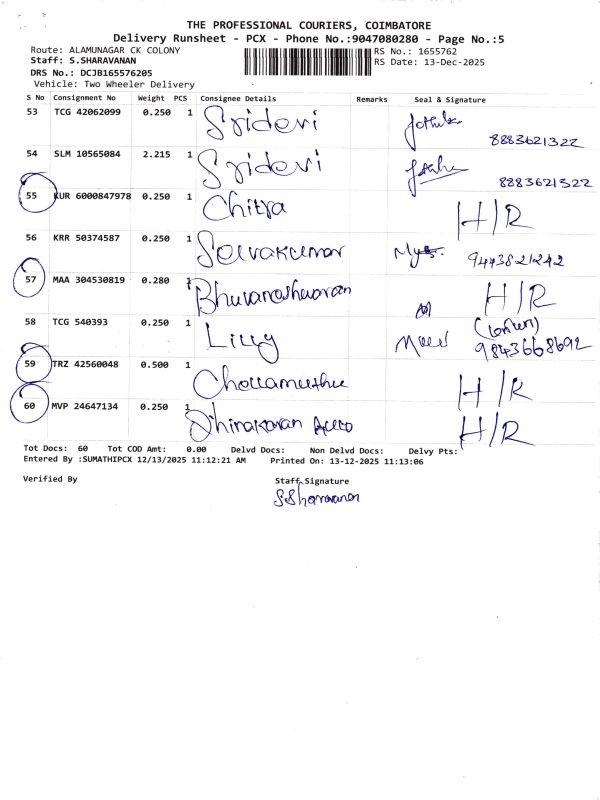 THE PROFESSIONAL COURIERS, COIMBATORE
Delivery Runsheet - PCX - Phone No.:9047080280 - Page No.:5
Route: ALAMUNAGAR CK COLONY RS No.: 1655762
Staff: S.SHARAVANAN RS Date: 13-Dec-2025
DRS No.: DCJB165576205
Vehicle: Two Wheeler Delivery
S No Consignment No Weight PCS Consignee Details Remarks Seal & Signature
53 TCG 42062099 0.250 1 Sridevi 8883621322
54 SLM 10565084 2.215 1 Sridevi 8883621322
55 KUR 6000847978 0.250 1 Chitra H/R
56 KRR 50374587 0.250 1 Selvakumar 9443821242
57 MAA 304530819 0.280 1 Bhuvaneshwaran H/R
58 TCG 540393 0.250 1 Lilly 9843668692
59 TRZ 42560048 0.500 1 H/R
60 MVP 24647134 0.250 1 H/R
Tot Docs: 60 Tot COD Amt: 0.00 Delvd Docs: Non Delvd Docs: Delvy Pts:
Entered By :SUMATHIPCX 12/13/2025 11:12:21 AM Printed On: 13-12-2025 11:13:06
Verified By Staff Signature
S Sharavanan